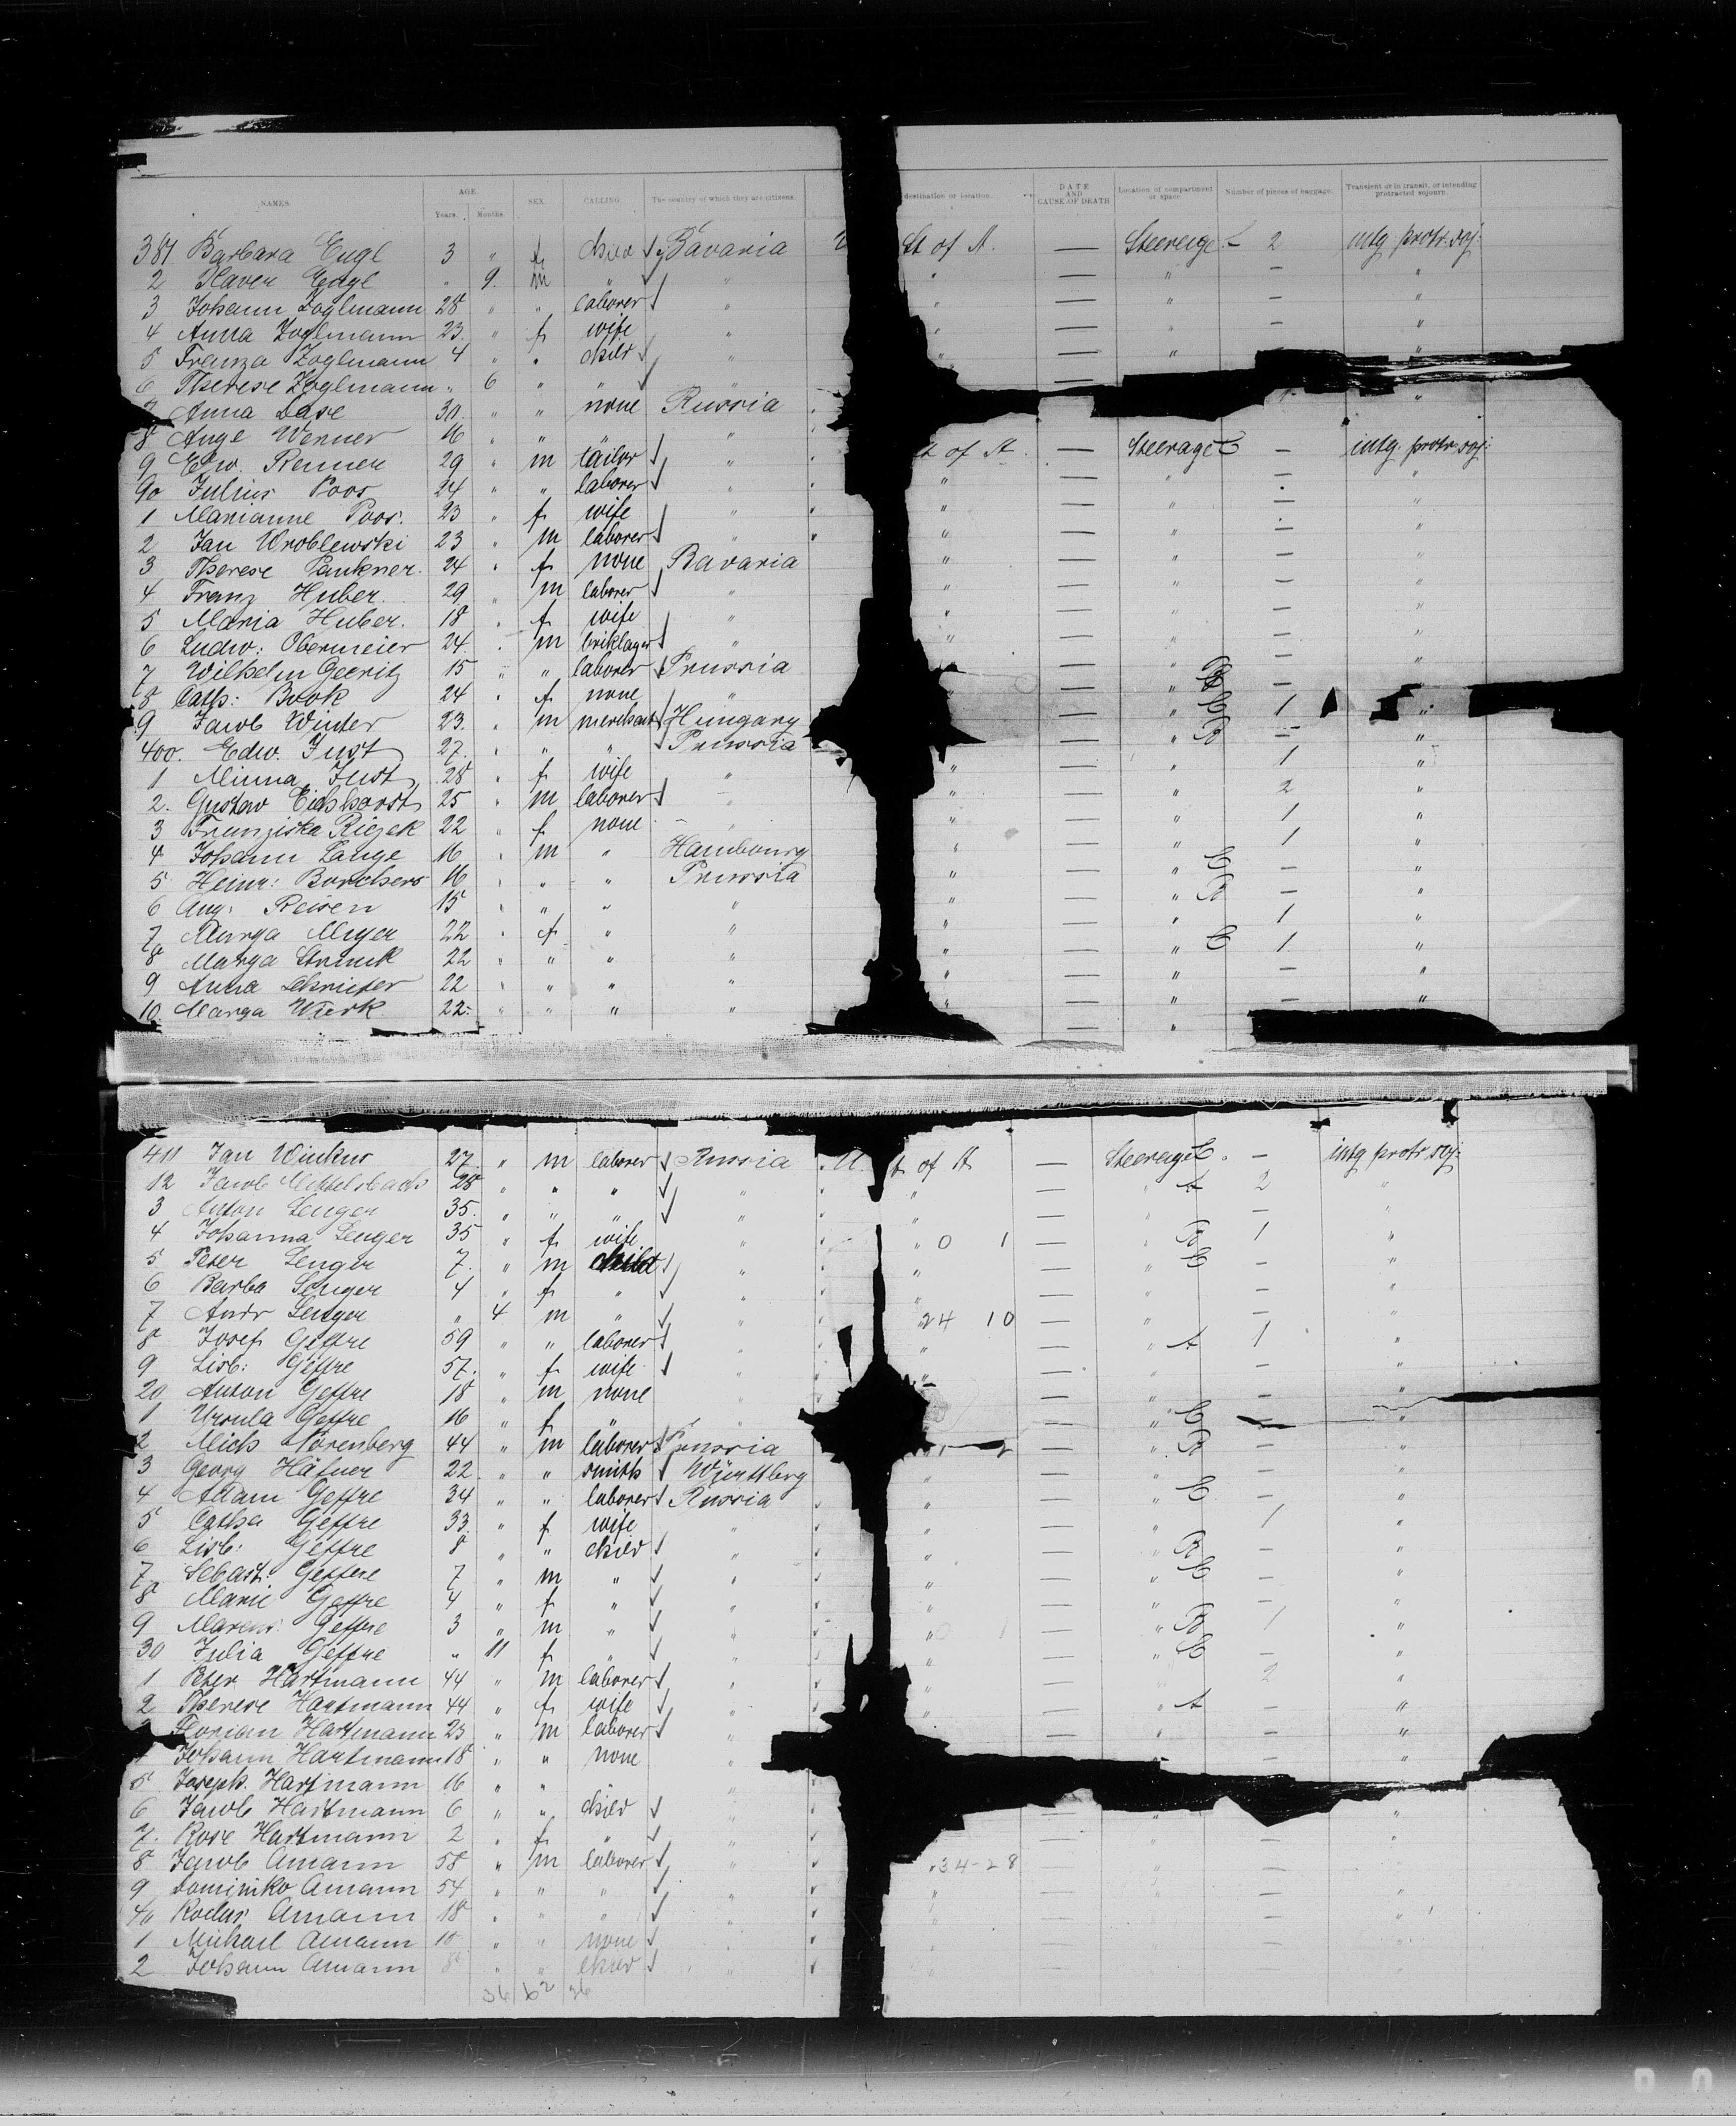 NAMES. AGE. Years. Months. SEX. CALLING. The country of which they are citizens. destination or location. DATE AND CAUSE OF DEATH Location of compartment or space. Number of pieces of baggage. Transient or in transit, or intending protracted sojourn.
381 Barbara Engl 3 " f child Bavaria St of A. — Steerage 2 intg protr. soj:
2 Xaver Engl " 9. m " " " — " — "
3 Johann Zoglmann 28 " " laborer " " — " — "
4 Anna Zoglmann 23. " f wife " " — " — "
5 Franza Zoglmann 4 " " child " " — " — "
6 Therese Zoglmann " 6 " " " —
7 Anna Dase 30. " " none Russia "
8 Auge Wenner 16 " " " "
9 Edw. Renner 29 " m tailor " t of A. — Steerage C — intg. protr. soj:
90 Julius Poos 24 " " laborer " " — " — "
1 Marianne Poos. 23 " f wife " " — " — "
2 Jan Wroblewski 23 " m laborer " " — " — "
3 Therese Paukner. 24 " f none Bavaria " — " — "
4 Franz Huber. 29. " m laborer " " — " — "
5 Maria Huber. 18 " f wife " " — " — "
6 Ludw: Obermeier 24. " m briklager " " — " — "
7 Wilhelm Geeritz 15 " " laborer Prussia " — " — "
8 Cath: Book 24 " f none " " — " — "
9 Jacob Winter 23. " m merchant Hungary " — " 1 "
400. Edw. Just 27. " " " Prussia — " — "
1 Minna Just 28 " f wife " " — " 1 "
2. Gustav Eichhorst 25 " m laborer " " — " 2 "
3 Franziska Riezek 22 " f none " " — " 1 "
4 Johann Lange 16 " m " Hambourg " — " 1 "
5 Heinr: Borchers 16 " " " Prussia " — " — "
6 Aug: Reisen 15 " " " " " — " — "
7 Marga Meyer 22 " f " " " — " 1 "
8 Marga Struck 22 " " " " " — " 1 "
9 Anna Schrieter 22 " " " " " — " — "
10. Marga Wierk 22. " " " " " — " — "
411 Jan Winkus 27. " m laborer Russia U. t of A — Steerage C. — intg protr soj:
12 Jacob Mittelsbach 28 " " " " " — " A 2 "
3 Anton Lenger 35. " " " " " — " — "
4 Johanna Lenger 35 " f wife " " 0 1 — " B 1 "
5 Peter Lenger 7. " m child " — " C — "
6 Barba Lenger 4 " f " " " — " — "
7 Andr Lenger " 4 m " " 24 10 — " — "
8 Josef Geffre 59 " " laborer " " — " A 1 "
9 Lisb: Geffre 57. " f wife " " — " — "
20 Anton Geffre 18 " m none " — " — "
1 Ursula Geffre 16 " f " " — " C — "
2 Mich Nörenberg 44 " m laborer Prussia " — " B — "
3 Georg Häfner 22 " " smith Württbrg " — " — "
4 Adam Geffre 34 " " laborer Russia " — " C — "
5 Catha Geffre 33. " f wife " " — " 1 "
6 Lisb: Geffre 8 " " child " " — " B — "
7 Sebast: Geffre 7 " m " " " — " C — "
8 Marie Geffre 4 " f " " " — " — "
9 Geffre 3 " m " " " — " B 1 "
30 Julia Geffre " 11 f " " " — " C "
1 Peter Hartmann 44 " m laborer " " — 2 "
2 Therese Hartmann 44 " f wife " " — " A — "
3 Florian Hartmann 23 " m laborer " — " — "
4 Johann Hartmann 18 " " none " — " — "
5 Joseph. Hartmann 16 " " "
6 Jacob Hartmann 6 " " child " — " — "
7. Rosa Hartmann 2 " f " " — " — "
8 Jacob Amann 58 " m laborer " 34-28 — " — "
9 Dominiko Amann 54 " " " " " — " — "
40 Amann 18 " " " " — " — "
1 Michael Amann 10 " " none " — " — "
2 Johann Amann 8 " " child " — " — "
36 62 26